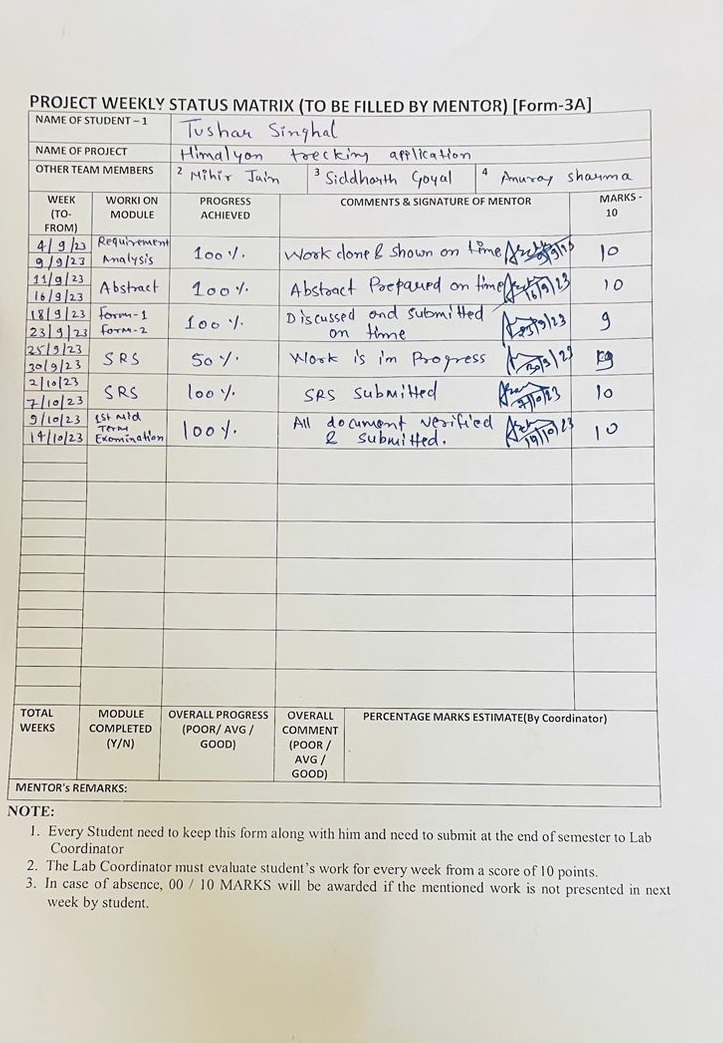 PROJECT WEEKLY STATUS MATRIX (TO BE FILLED BY MENTOR) [Form-3A]
NAME OF STUDENT – 1 Tushar Singhal
NAME OF PROJECT Himalyon trecking application
OTHER TEAM MEMBERS 2 Mihir Jain 3 Siddharth Goyal 4 Anuray sharma
WEEK (TO-FROM) WORKI ON MODULE PROGRESS ACHIEVED COMMENTS & SIGNATURE OF MENTOR MARKS - 10
4/9/23 9/9/23 Requirement Analysis 100% Work done & shown on time 10
11/9/23 16/9/23 Abstract 100% Abstract Prepared on time 16/9/23 10
18/9/23 23/9/23 form-1 form-2 100% Discussed and submitted on time 9
25/9/23 30/9/23 SRS 50% Work is in Progress 30/9/23
2/10/23 7/10/23 SRS 100% SRS submitted 7/10/23 10
9/10/23 14/10/23 1st Mid Term Examination 100% All document verified & submitted. 10
TOTAL WEEKS MODULE COMPLETED (Y/N) OVERALL PROGRESS (POOR/ AVG / GOOD) OVERALL COMMENT (POOR / AVG / GOOD) PERCENTAGE MARKS ESTIMATE(By Coordinator)
MENTOR's REMARKS:
NOTE:
1. Every Student need to keep this form along with him and need to submit at the end of semester to Lab
Coordinator
2. The Lab Coordinator must evaluate student's work for every week from a score of 10 points.
3. In case of absence, 00 / 10 MARKS will be awarded if the mentioned work is not presented in next
week by student.